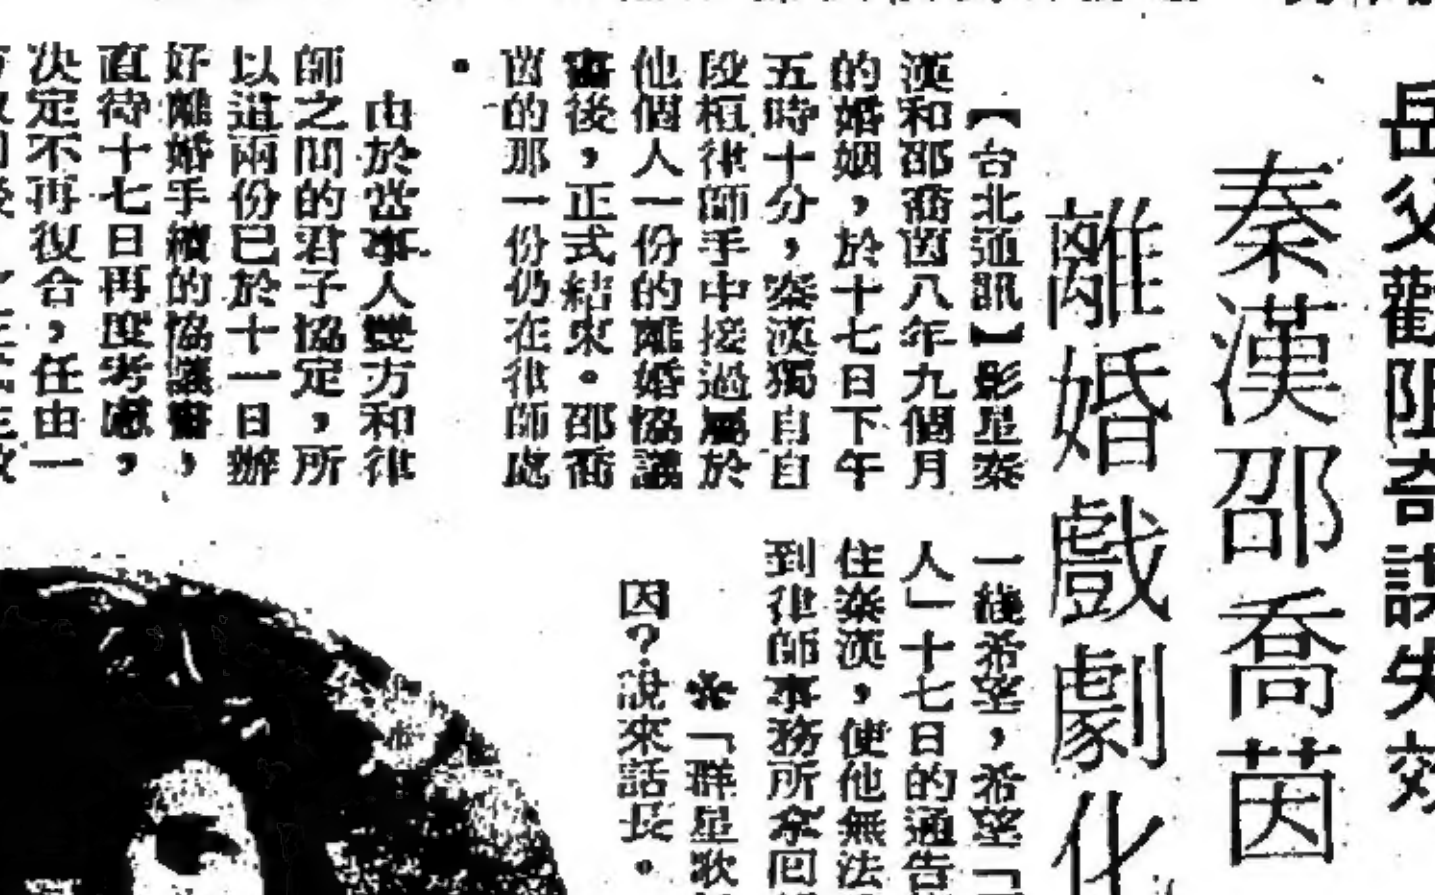 岳父勸阻奇謀失效
秦漢邵喬茵
離婚戲劇化
【台北通訊】影星秦
漢和邵喬茵八年九個月
的婚姻，於十七日下午
五時十分，秦漢獨自自
段桓律師手中接過屬於
他個人一份的離婚協議
書後，正式結束。邵喬
茵的那一份仍在律師處
。
由於當事人雙方和律
師之間的君子協定，所
以這兩份已於十一日辦
好離婚手續的協議書，
直待十七日再度考慮，
決定不再復合，任由一
一綫希望，希望「
人」十七日的通告
住秦漢，使他無法
到律師事務所拿回
＊「群星歌
因？說來話長。